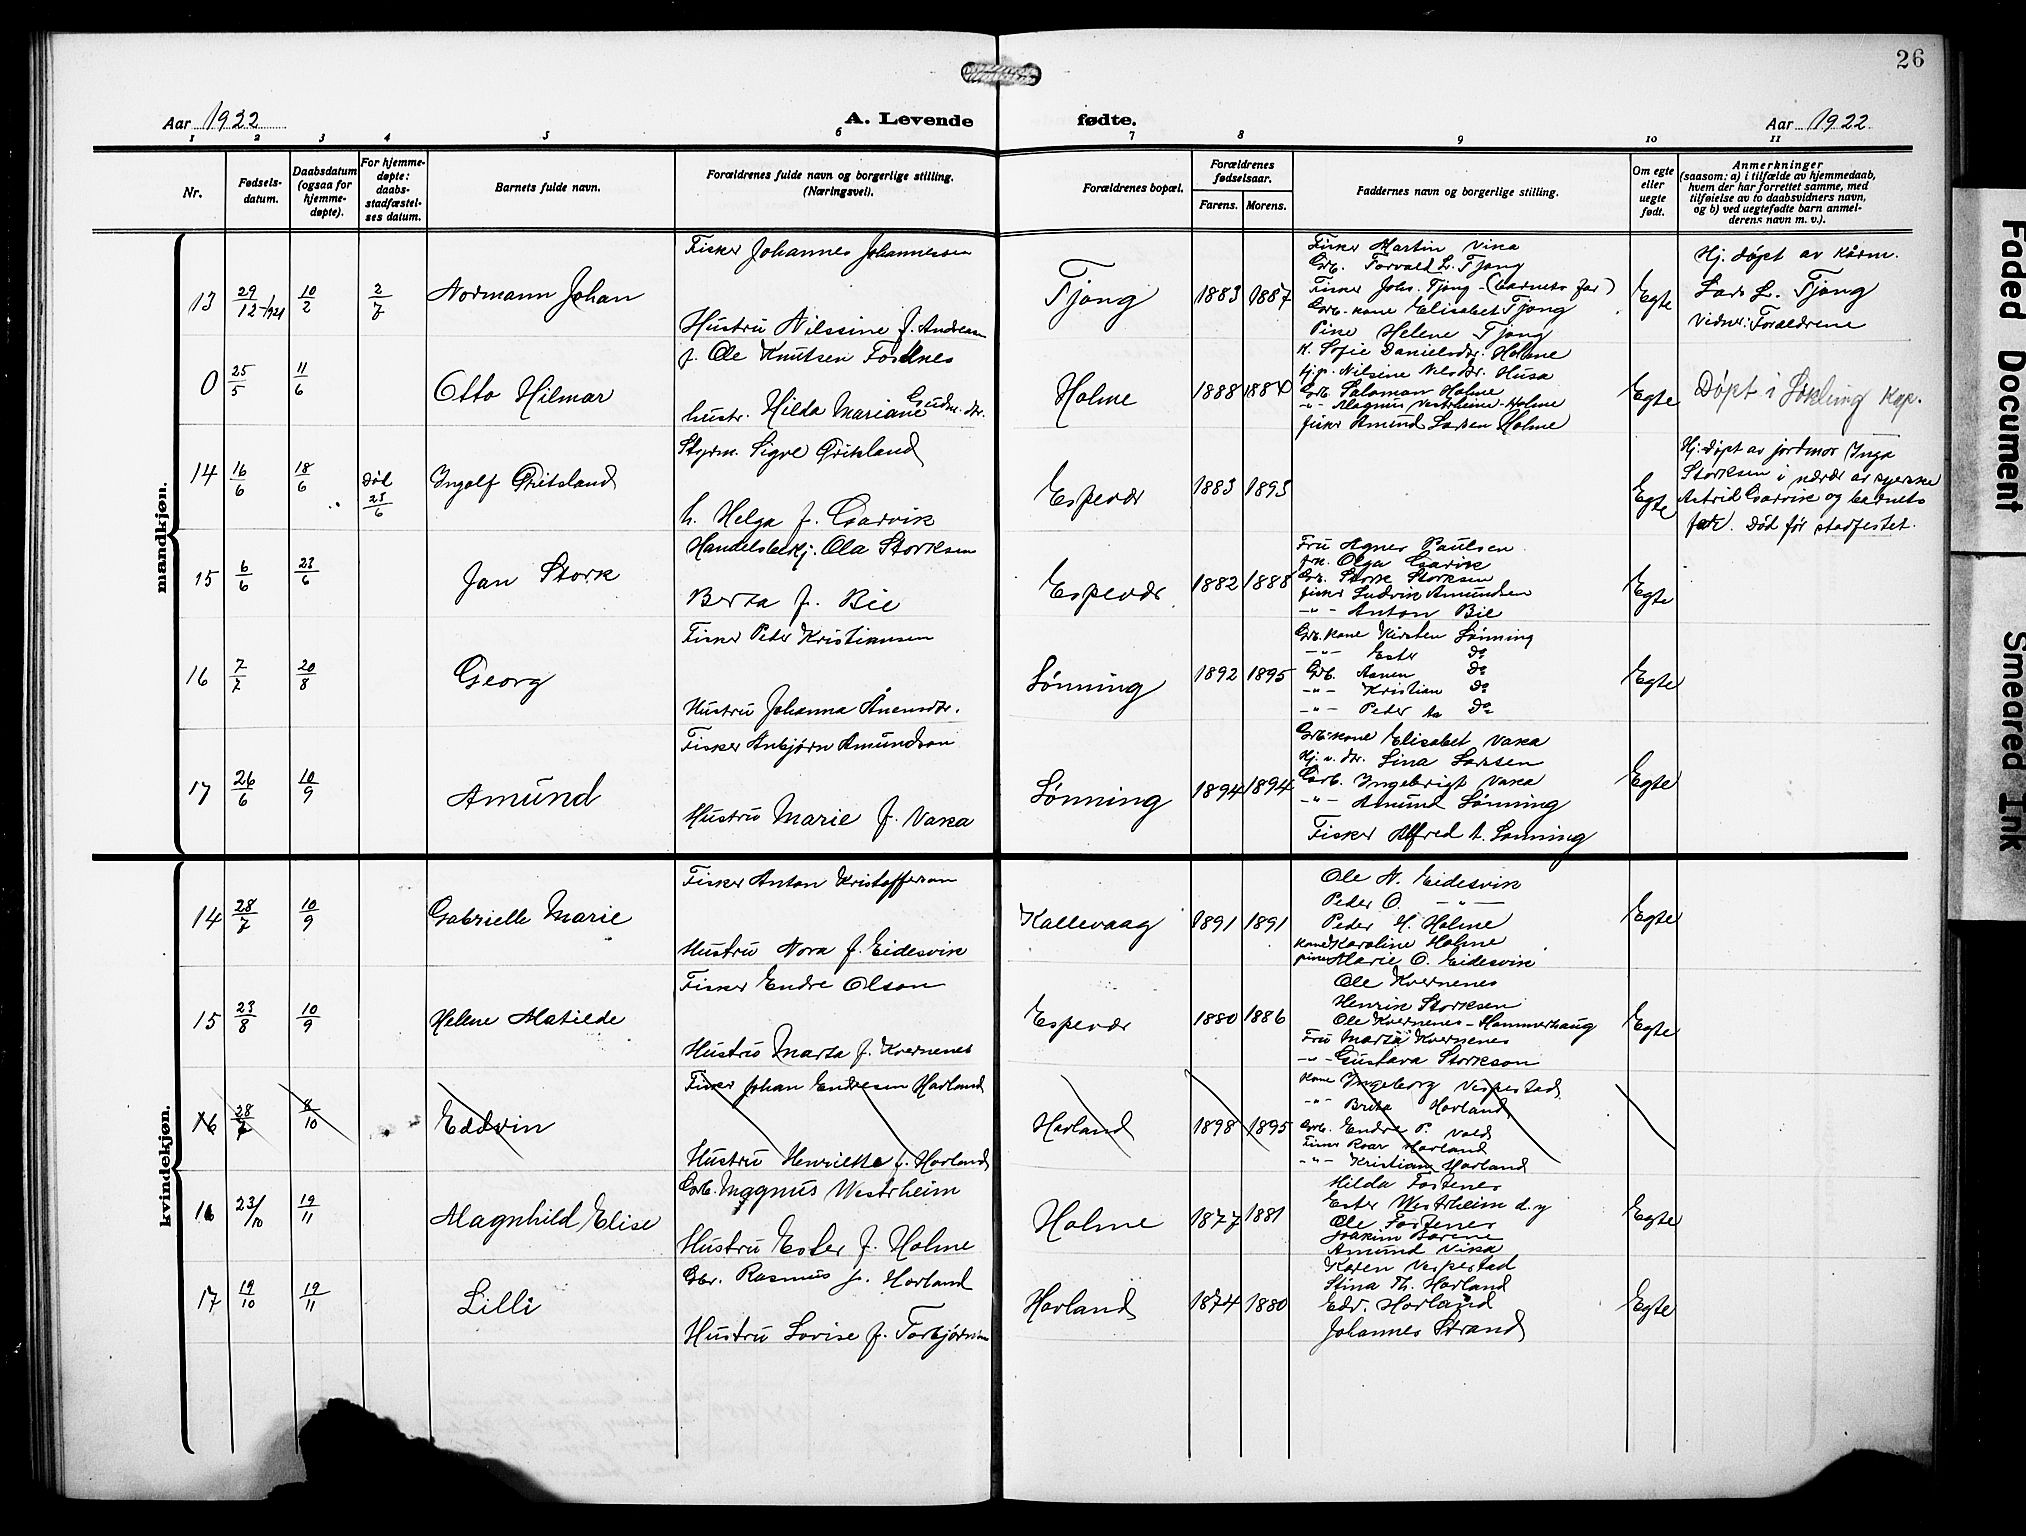 26
Aar 1922
A. Levende fødte.
Aar 1922.
1 2 3 4 5 6 7 8 9 10 11
Nr.
Fødsels-
datum.
Daabsdatum
(ogsaa for
hjemme-
døpte).
For hjemme-
døpte:
daabs-
stadfæstel-
ses datum.
Barnets fulde navn.
Forældrenes fulde navn og borgerlige stilling.
(Næringsvei).
Forældrenes bopæl.
Forældrenes
fødselsaar.
Farens. Morens.
Faddernes navn og borgerlige stilling.
Om egte
eller
uegte
født.
Anmerkninger
(saasom: a) i tilfælde av hjemmedaab,
hvem der har forrettet samme, med
tilføielse av to daabsvidners navn,
og b) ved uegtefødte barn anmel-
derens navn m. v.).
mandkjøn.
13 29/12-1921 10/2 2/7 Normann Johan
Fisker Johannes Johannessen
Hustru Nilssine f. Andreasen
Tjong 1883 1887
Fisker Martin Vika
Grb. Torvald L. Tjong
Fisker Johs. Tjong - (barnets far)
Grb. kone Elisabet Tjong
Pike Helene Tjong
Egte
Hj. døpt av kårm.
Lars L. Tjong
Vidner: Forældrene
0 25/5 11/6 Otto Hilmar
f. Ole Knutsen Fosnes
hustr. Hilda Mariane Gudm. dr.
Holme 1888 1884
k. Sofie Danielsdr. Holme
hj.p. Nilsine Nilsdr. Husa
Grb. Salomon Holme
-"- Magnus Vestrheim-Holme
fisker Amund Larsen Holme
Egte
Døpt i Løkling Kap.
14 16/6 18/6 død 23/6 Ingolf Gritsland
Styrm. Sigve Gritsland
h. Helga f. Garvik
Espevær 1883 1893
Egte
Hj. døpt av jordmor Inga
Storksen i nærvær av syerske
Astrid Garvik og barnets
far. Død før stadfestet.
15 6/6 23/6 Jan Stork
Handelsbetj. Ola Storksen
Berta f. Bie
Espevær 1882 1888
Fru Agnes Paulsen
frk. Olga Garvik
Grb. Stork Storksen
fisker Ludvik Amundsen
-"- Anton Bie
Egte
16 7/7 20/8 Georg
Fisker Peder Kristiansen
Hustru Johanna Ånensdr.
Lønning 1892 1895
Grb. kone Kirsten Lønning
-"- Ester do
Grb. Aanen do
-"- Kristian do
-"- Peder do
Egte
17 26/6 10/9 Amund
Fisker Anbjørn Amundson
Hustru Marie f. Vaka
Lønning 1894 1894
Grb. kone Elisabet Vaka
Hj. v. dr. Lina Larsen
Grb. Ingebrigt Vaka
-"- Amund Lønning
Fisker Alfred A. Lønning
Egte
kvindekjøn.
14 28/7 10/9 Gabrielle Marie
Fisker Anton Kristofferson
Hustru Nora f. Eidesvik
Kallevaag 1891 1891
Ole N. Eidesvik
Peder O. -"-
Peder H. Holme
kone Karoline Holme
pike Marie O. Eidesvik
Egte
15 23/8 10/9 Helene Matilde
Fisker Endre Olson
Hustru Marta f. Kvernenes
Espevær 1880 1886
Ole Kvernenes
Henrik Storksen
Ole Kvernenes - Hammerhaug
Fru Marta Kvernenes
-"- Gustava Storkson
Egte
16 28/7 8/10 Eddvin
Fisker Johan Endresen Hovland
Hustru Henriette f. Hovland
Hovland 1898 1895
Kone Ingeborg Vespestad
-"- Brita Hovland
Grb. Endre P. Vold
Fisker Roar Hovland
-"- Kristian Hovland
16 23/10 19/11 Magnhild Elise
Grb. Magnus Westrheim
Hustru Ester f. Holme
Holme 1877 1881
Hilda Fostenes
Ester Westrheim d.y
Ole Fostenes
Joakim Barene
Amund Vika
Egte
17 19/10 19/11 Lilli
Gbr. Rasmus J. Hovland
Hustru Lovise f. Torbjørnsen
Hovland 1874 1880
Karen Vespestad
Stina Th. Hovland
Edv. Hovland
Johannes Strand
Egte
Faded Document
Smeared Ink